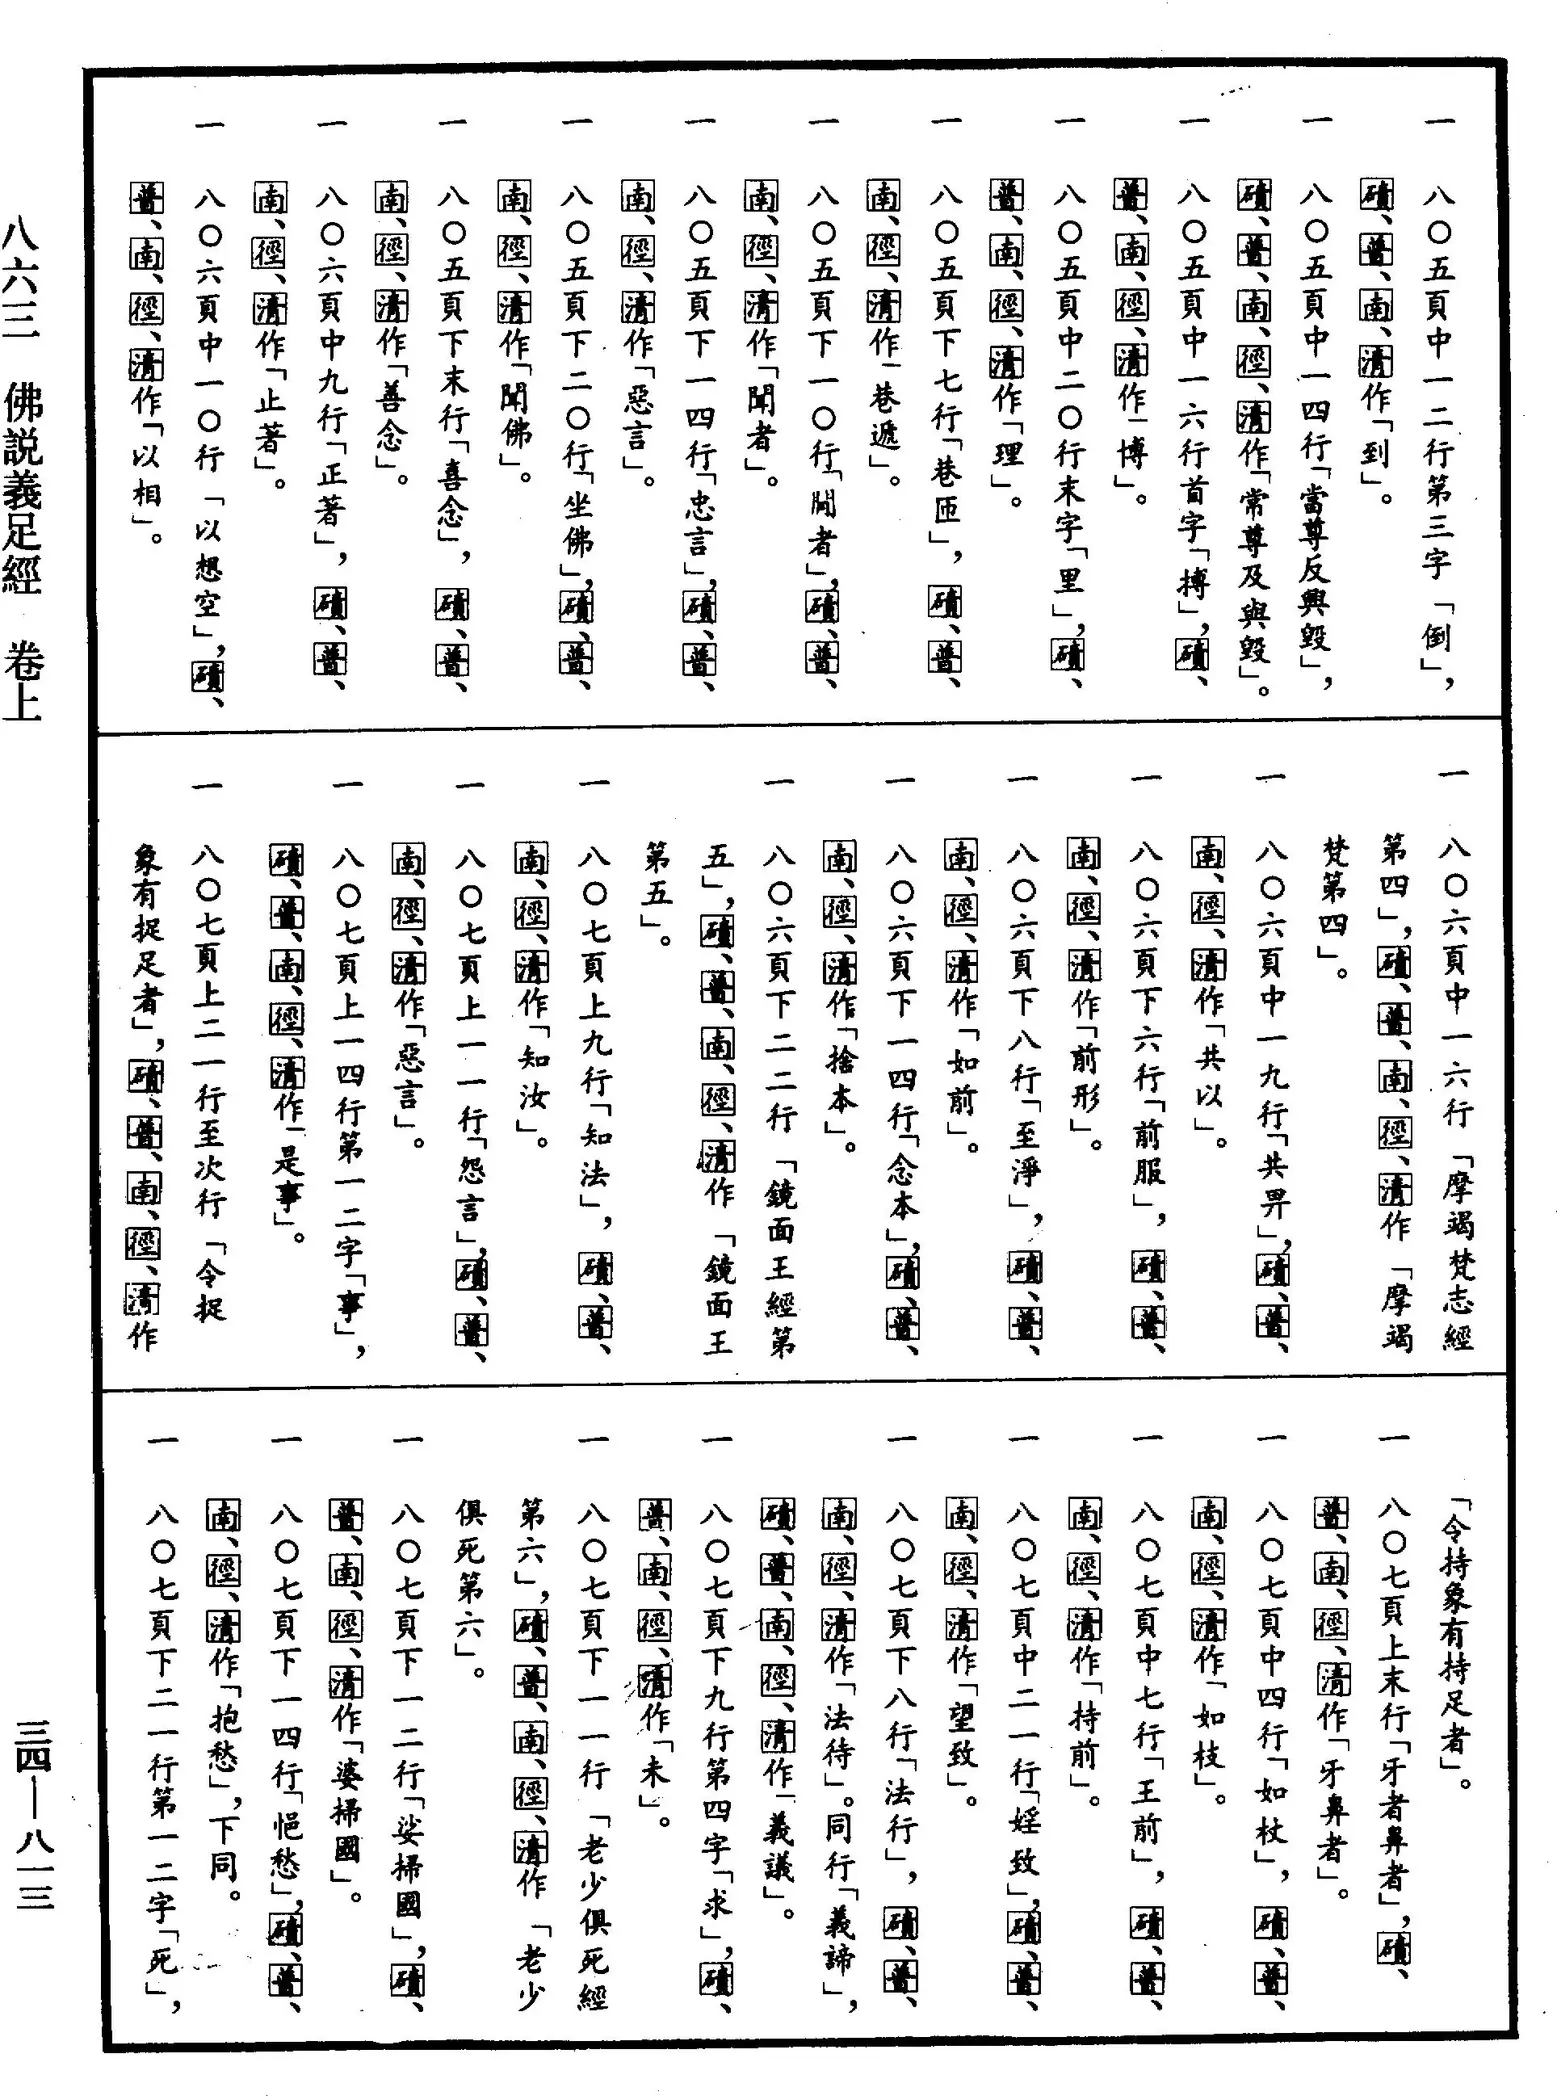 一　八〇五頁中一二行第三字「倒」，
磧、普、南、清作「到」。
一　八〇五頁中一四行「當尊反興毀」，
磧、普、南、徑、清作「常尊及與毀」。
一　八〇五頁中一六行首字「搏」，磧、
普、南、徑、清作「博」。
一　八〇五頁中二〇行末字「里」，磧、
普、南、徑、清作「理」。
一　八〇五頁下七行「巷匝」，磧、普、
南、徑、清作「巷遞」。
一　八〇五頁下一〇行「閒者」，磧、普、
南、徑、清作「聞者」。
一　八〇五頁下一四行「忠言」，磧、普、
南、徑、清作「惡言」。
一　八〇五頁下二〇行「坐佛」，磧、普、
南、徑、清作「聞佛」。
一　八〇五頁下末行「喜念」，磧、普、
南、徑、清作「善念」。
一　八〇六頁中九行「正著」，磧、普、
南、徑、清作「止著」。
一　八〇六頁中一〇行「以想空」，磧、
普、南、徑、清作「以相」。
一　八〇六頁中一六行「摩竭梵志經
第四」，磧、普、南、徑、清作「摩竭
梵第四」。
一　八〇六頁中一九行「共畀」，磧、普、
南、徑、清作「共以」。
一　八〇六頁下六行「前服」，磧、普、
南、徑、清作「前形」。
一　八〇六頁下八行「至淨」，磧、普、
南、徑、清作「如前」。
一　八〇六頁下一四行「念本」，磧、普、
南、徑、清作「捨本」。
一　八〇六頁下二二行「鏡面王經第
五」，磧、普、南、徑、清作「鏡面王
第五」。
一　八〇七頁上九行「知法」，磧、普、
南、徑、清作「知汝」。
一　八〇七頁上一一行「怨言」，磧、普、
南、徑、清作「惡言」。
一　八〇七頁上一四行第一二字「事」，
磧、普、南、徑、清作「是事」。
一　八〇七頁上二一行至次行「令捉
象有捉足者」，磧、普、南、徑、清作
「令持象有持足者」。
一　八〇七頁上末行「牙者鼻者」，磧、
普、南、徑、清作「牙鼻者」。
一　八〇七頁中四行「如杖」，磧、普、
南、徑、清作「如枝」。
一　八〇七頁中七行「王前」，磧、普、
南、徑、清作「持前」。
一　八〇七頁中二一行「婬致」，磧、普、
南、徑、清作「望致」。
一　八〇七頁下八行「法行」，磧、普、
南、徑、清作「法待」。同行「義諦」，
磧、普、南、徑、清作「義議」。
一　八〇七頁下九行第四字「求」，磧、
普、南、徑、清作「未」。
一　八〇七頁下一一行「老少俱死經
第六」，磧、普、南、徑、清作「老少
俱死第六」。
一　八〇七頁下一二行「娑掃國」，磧、
普、南、徑、清作「婆掃國」。
一　八〇七頁下一四行「悒愁」，磧、普、
南、徑、清作「抱愁」，下同。
一　八〇七頁下二一行第一二字「死」，
八六三　佛説義足經　卷上
三四—八一三